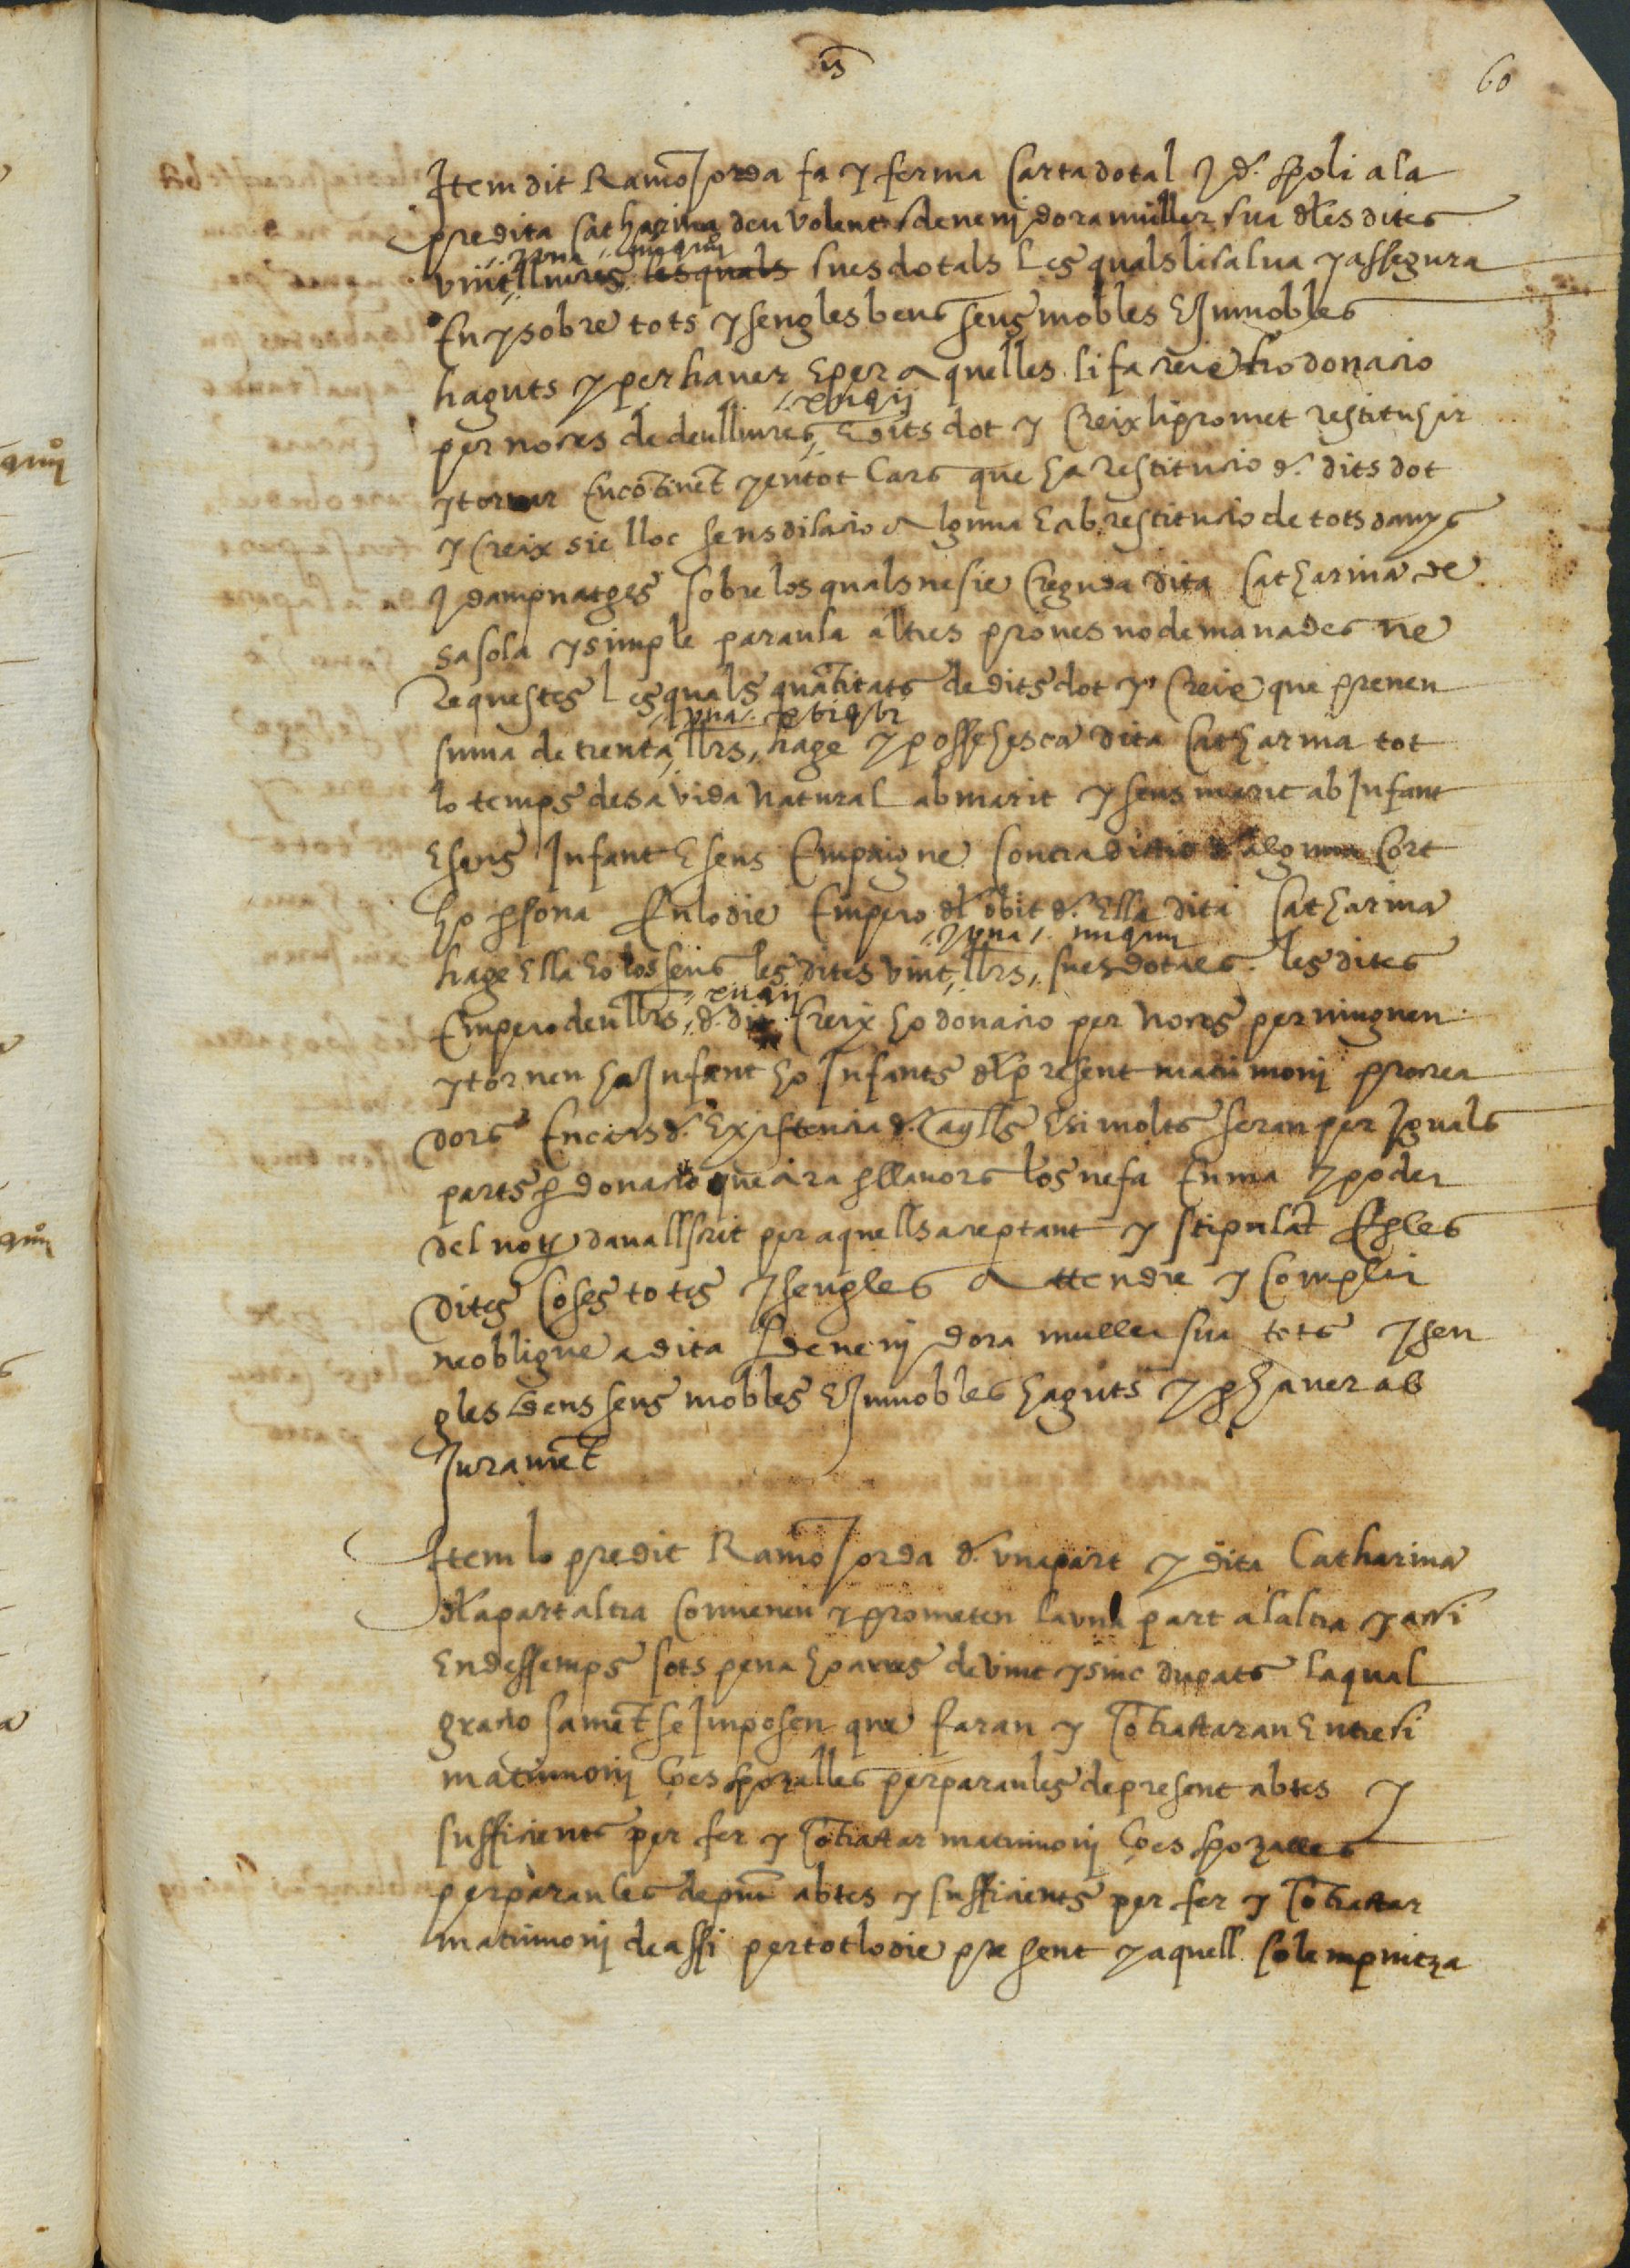 60
Item dit Ramo Jorda fa y ferma Carta dotal y d. spoli a la
predita Catharina deu volent sdevenjdora muller sua dles dites
y una
vint lliures les quals sues dotals Les quals li salva y assegura
En y sobre tots y sengles bens seus mobles E Immobles
haguts y per haver E per aquelles li fa creix ho donacio
per noces de deu lliures, E dits dot y Creix li promet restituhir
y tornar Encotinet y en tot Cars que ha Restitucio d. dits dot
y Creix sie lloc sens dilacio alguna E ab restitucio de tots danys
y dampnatges sobre los quals ne sie Creguda dita Catharina de
sa sola y simple paraula altres proves no demanades ne
Requestes Les quals quatitats de dits dot y Creix que prenen
y una
suma de trenta, llrs, hage y possehesca dita Catharina tot
lo temps de sa vida Natural ab marit y sens marit ab Infant
E sens Infant E sens Empaigne Contradictio d alguna Cort
ho psona En lo die Empero dl obit d. Ella dita Catharina
y una
hage Ella ho los seus les dites vint, llrs, sues dotals les dites
Empero deu llrs, d. dit Creix ho donacio per Noces per vinguen
y tornen ha Infant ho Infants dl present matrimonj procrea
dors En cars d. Existencia d. aqlls E si molts seran per Iguals
parts p donacio que ara p llavors los ne fa En ma y poder
del noty davall scrit per aquells acceptant y stipulat E p les
dites Coses totes y sengles Attendre y Complir
ne obligue a dita sdevenj dora muller sua tots y sen
gles Bens seus mobles E Immobles haguts y p haver ab
Juramet
Item lo predit Ramo Jorda d. una part y dita Catharina
dla part altra Convenen y prometen la una part a laltra y axi
Endessemps sots pena de vint y sinc ducats la qual
graciosamet se Imposen que faran y Cotractaran Entre si
matrimonj Ço es spozalles per paraules de present abtes y
sufficients per fer y Cotractar matrimonj Ço es spozalles
per paraules de pnt abtes y sufficients per fer y Cotractar
matrimonj de assi per tot lo die present y aquell solempnitza